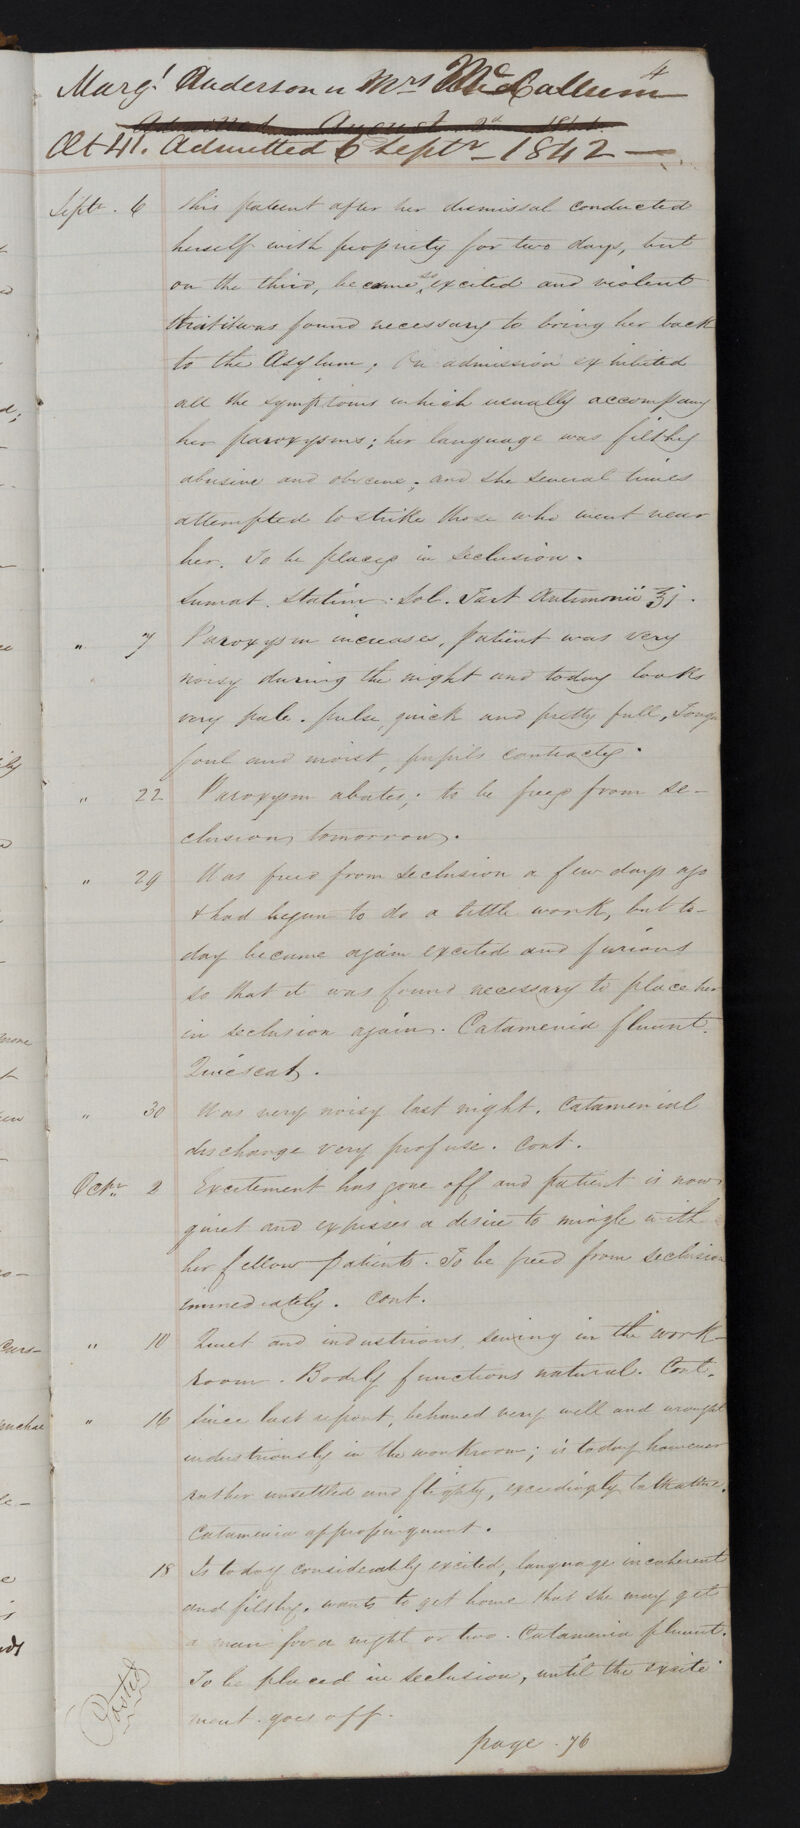 4
Margt Anderson or Mrs McCallum
Admitted August 2d 1842
Æt 41. Admitted 6 Septr - 1842 -
Septr. 6 This patient after her dismissal conducted
herself with propriety for two days, but
on the third, became so excited and violent
that it was found necessary to bring her back
to the Asylum. On admission exhibited
all the symptoms which usually accompany
her paroxysms; her language was filthy
abusive and obscene; and she several times
attempted to strike those who went near
her. To be placed in seclusion.
Sumat. Statim. Sol. Tart Antimonii ℥j.
" 7 Paroxysm increases, patient was very
noisy during the night and today looks
very pale. pulse quick and pretty full, Tongue
foul and moist, pupils contracted.
" 22 Paroxysm abates; to be freed from se-
clusion tomorrow.
" 29 Was freed from seclusion a few days ago
& had begun to do a little work, but to-
day became again excited and furious
so that it was found necessary to place her
in seclusion again. Catamenia fluunt.
Quiescat.
" 30 Was very noisy last night. Catamenial
discharge very profuse. Cont.
Octr 2 Excitement has gone off and patient is now
quiet and expresses a desire to mingle with
her fellow patients. To be freed from seclusion
immediately. Cont.
" 10 Quiet and industrious, sewing in the work-
room. Bodily functions natural. Cont.
" 16 Since last report, behaved very well and wrought
industriously in the workroom; is today however
rather unsettled and flighty, exceedingly talkative.
Catamenia appropinquant.
18 Is today considerably excited, language incoherent
and filthy. wants to get home that she may get
a man for a night or two. Catamenia fluunt.
To be placed in seclusion, until the excite
ment goes off.
Posted
page. 76